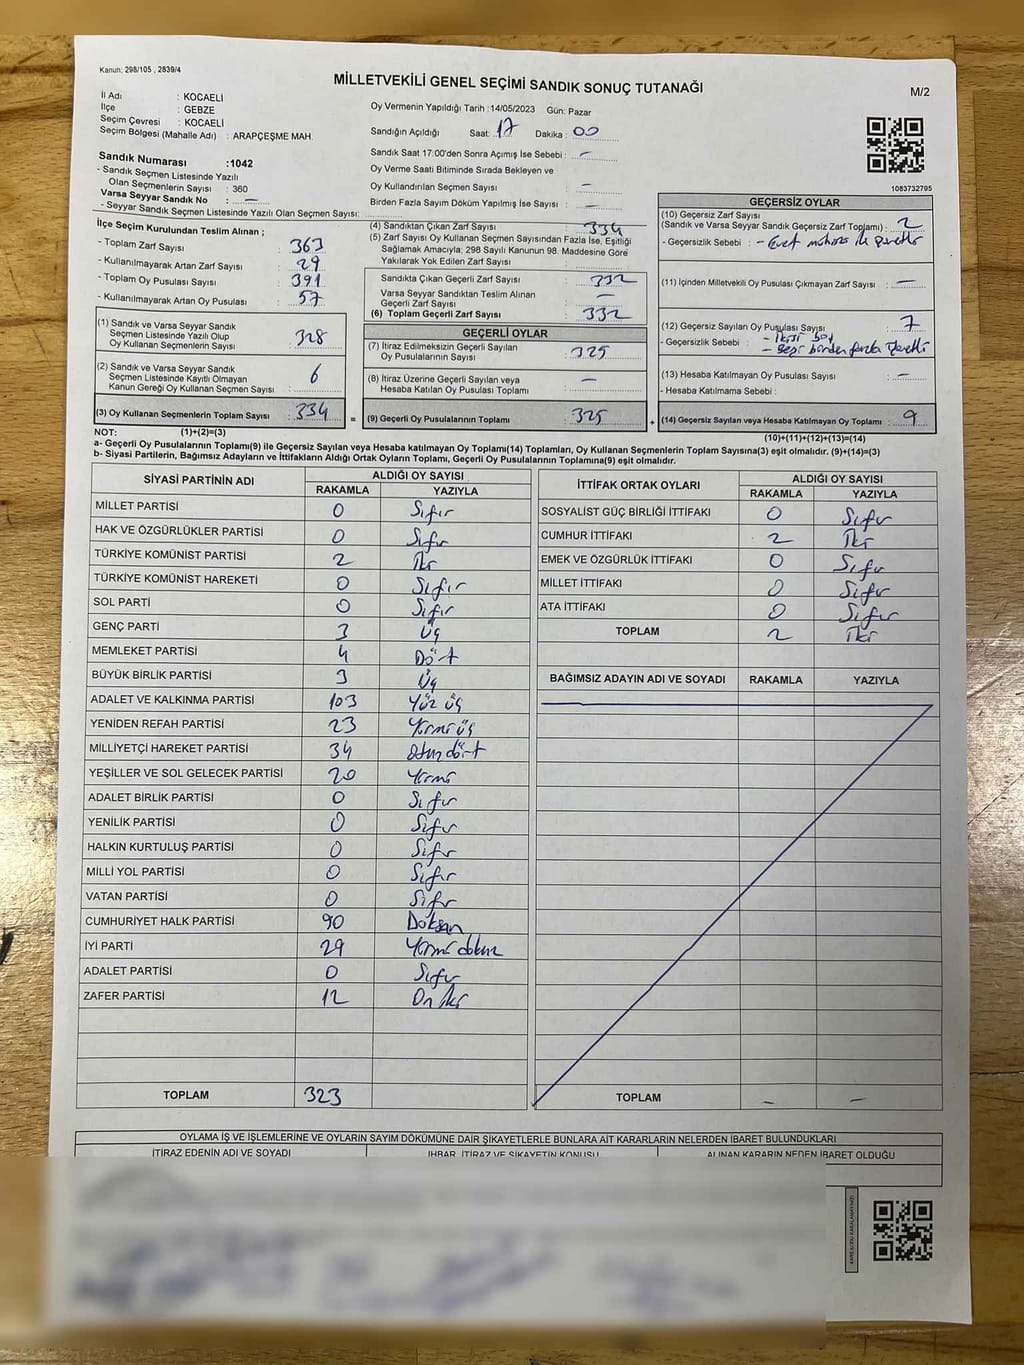 Kanun; 298/105 , 2839/4
MİLLETVEKİLİ GENEL SEÇİMİ SANDIK SONUÇ TUTANAĞI
M/2
İl Adı : KOCAELİ
İlçe : GEBZE
Seçim Çevresi : KOCAELİ
Seçim Bölgesi (Mahalle Adı) : ARAPÇEŞME MAH
Sandık Numarası :1042
- Sandık Seçmen Listesinde Yazılı
Olan Seçmenlerin Sayısı : 360
Varsa Seyyar Sandık No : —
- Seyyar Sandık Seçmen Listesinde Yazılı Olan Seçmen Sayısı:
Oy Vermenin Yapıldığı Tarih :14/05/2023 Gün: Pazar
Sandığın Açıldığı Saat: 17 Dakika : 00
Sandık Saat 17:00'den Sonra Açımış İse Sebebi : —
Oy Verme Saati Bitiminde Sırada Bekleyen ve
Oy Kullandırılan Seçmen Sayısı : —
Birden Fazla Sayım Döküm Yapılmış İse Sayısı : —
1083732795
İlçe Seçim Kurulundan Teslim Alınan ;
- Toplam Zarf Sayısı : 363
- Kullanılmayarak Artan Zarf Sayısı : 29
- Toplam Oy Pusulası Sayısı : 391
- Kullanılmayarak Artan Oy Pusulası : 57
(1) Sandık ve Varsa Seyyar Sandık
Seçmen Listesinde Yazılı Olup
Oy Kullanan Seçmenlerin Sayısı : 328
(2) Sandık ve Varsa Seyyar Sandık
Seçmen Listesinde Kayıtlı Olmayan
Kanun Gereği Oy Kullanan Seçmen Sayısı : 6
(3) Oy Kullanan Seçmenlerin Toplam Sayısı : 334
(4) Sandıktan Çıkan Zarf Sayısı : 334
(5) Zarf Sayısı Oy Kullanan Seçmen Sayısından Fazla İse, Eşitliği
Sağlamak Amacıyla; 298 Sayılı Kanunun 98. Maddesine Göre
Yakılarak Yok Edilen Zarf Sayısı :
Sandıkta Çıkan Geçerli Zarf Sayısı : 332
Varsa Seyyar Sandıktan Teslim Alınan
Geçerli Zarf Sayısı : —
(6) Toplam Geçerli Zarf Sayısı : 332
GEÇERLİ OYLAR
(7) İtiraz Edilmeksizin Geçerli Sayılan
Oy Pusulalarının Sayısı : 325
(8) İtiraz Üzerine Geçerli Sayılan veya
Hesaba Katılan Oy Pusulası Toplamı : —
= (9) Geçerli Oy Pusulalarının Toplamı : 325
GEÇERSİZ OYLAR
(10) Geçersiz Zarf Sayısı
(Sandık ve Varsa Seyyar Sandık Geçersiz Zarf Toplamı) : 2
- Geçersizlik Sebebi : - Evet mührü ile
(11) İçinden Milletvekili Oy Pusulası Çıkmayan Zarf Sayısı : —
(12) Geçersiz Sayılan Oy Pusulası Sayısı : 7
- Geçersizlik Sebebi : - İkisi boş
- Beşi birden fazla
(13) Hesaba Katılmayan Oy Pusulası Sayısı : —
- Hesaba Katılmama Sebebi :
+ (14) Geçersiz Sayılan veya Hesaba Katılmayan Oy Toplamı : 9
NOT: (1)+(2)=(3)
(10)+(11)+(12)+(13)=(14)
a- Geçerli Oy Pusulalarının Toplamı(9) ile Geçersiz Sayılan veya Hesaba katılmayan Oy Toplamı(14) Toplamları, Oy Kullanan Seçmenlerin Toplam Sayısına(3) eşit olmalıdır. (9)+(14)=(3)
b- Siyasi Partilerin, Bağımsız Adayların ve İttifakların Aldığı Ortak Oyların Toplamı, Geçerli Oy Pusulalarının Toplamına(9) eşit olmalıdır.
SİYASİ PARTİNİN ADI ALDIĞI OY SAYISI
RAKAMLA YAZIYLA
MİLLET PARTİSİ 0 Sıfır
HAK VE ÖZGÜRLÜKLER PARTİSİ 0 Sıfır
TÜRKİYE KOMÜNİST PARTİSİ 2 İki
TÜRKİYE KOMÜNİST HAREKETİ 0 Sıfır
SOL PARTİ 0 Sıfır
GENÇ PARTİ 3 Üç
MEMLEKET PARTİSİ 4 Dört
BÜYÜK BİRLİK PARTİSİ 3 Üç
ADALET VE KALKINMA PARTİSİ 103 Yüz üç
YENİDEN REFAH PARTİSİ 23 Yirmi üç
MİLLİYETÇİ HAREKET PARTİSİ 34 Otuz dört
YEŞİLLER VE SOL GELECEK PARTİSİ 20 Yirmi
ADALET BİRLİK PARTİSİ 0 Sıfır
YENİLİK PARTİSİ 0 Sıfır
HALKIN KURTULUŞ PARTİSİ 0 Sıfır
MİLLİ YOL PARTİSİ 0 Sıfır
VATAN PARTİSİ 0 Sıfır
CUMHURİYET HALK PARTİSİ 90 Doksan
İYİ PARTİ 29 Yirmi dokuz
ADALET PARTİSİ 0 Sıfır
ZAFER PARTİSİ 12 On iki
TOPLAM 323
İTTİFAK ORTAK OYLARI ALDIĞI OY SAYISI
RAKAMLA YAZIYLA
SOSYALİST GÜÇ BİRLİĞİ İTTİFAKI 0 Sıfır
CUMHUR İTTİFAKI 2 İki
EMEK VE ÖZGÜRLÜK İTTİFAKI 0 Sıfır
MİLLET İTTİFAKI 0 Sıfır
ATA İTTİFAKI 0 Sıfır
TOPLAM 2 İki
BAĞIMSIZ ADAYIN ADI VE SOYADI RAKAMLA YAZIYLA
TOPLAM — —
OYLAMA İŞ VE İŞLEMLERİNE VE OYLARIN SAYIM DÖKÜMÜNE DAİR ŞİKAYETLERLE BUNLARA AİT KARARLARIN NELERDEN İBARET BULUNDUKLARI
İTİRAZ EDENİN ADI VE SOYADI İHBAR, İTİRAZ VE ŞİKAYETİN KONUSU ALINAN KARARIN NEDEN İBARET OLDUĞU
KARE KODU KARALAMAYINIZ!